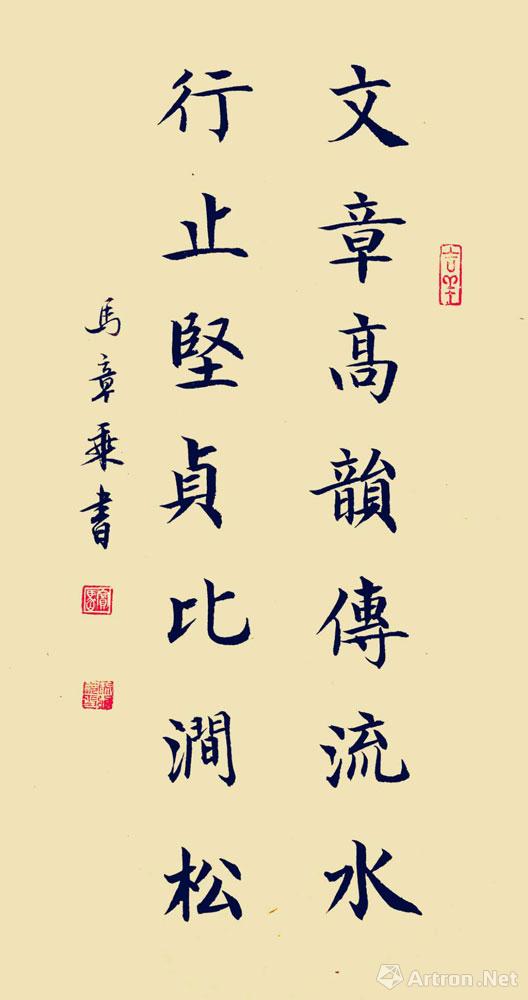 文章高韻傳流水
行止堅貞比澗松
馬章乘書
Artron.Net